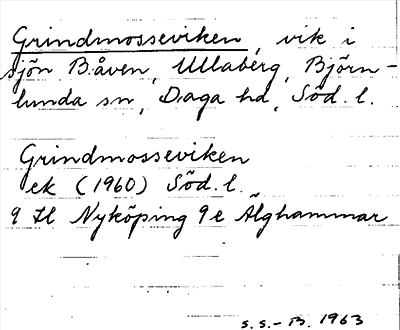 Grindmosseviken, vik i
sjön Båven, Ullaberg, Björn-
lunda sn, Daga hd, Söd. l.
Grindmosseviken
ek (1960) Söd. l.
9 H Nyköping 9e Älghammar
S.S.-B. 1963